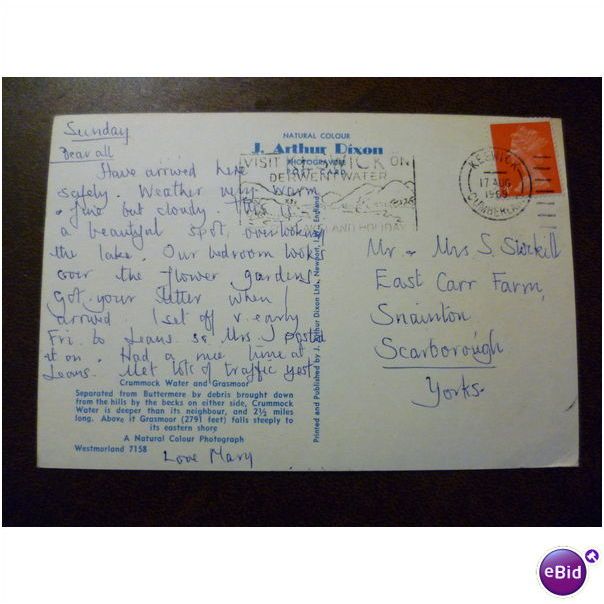 Sunday
Dear all
Have arrived here
safely. Weather very warm
& fine but cloudy. This is
a beautiful spot, overlooking
the lake. Our bedroom looks
over the flower gardens.
Got your letter when I
arrived I set off v. early
Fri. to Leans. so Mrs J posted
it on. Had a nice time at
Leans. Met lots of traffic yest.
Love Mary
NATURAL COLOUR
J. Arthur Dixon
PHOTOGRAVURE
POST CARD
VISIT KESWICK ON
DERWENTWATER
AND HOLIDAY
KESWICK
17 AUG
1969
CUMBERLAND
Mr & Mrs S. Stockill
East Carr Farm,
Snainton
Scarborough
Yorks.
Printed and Published by J. Arthur Dixon Ltd., Newport, I.W., England
Crummock Water and Grasmoor
Separated from Buttermere by debris brought down
from the hills by the becks on either side, Crummock
Water is deeper than its neighbour, and 2½ miles
long. Above it Grasmoor (2791 feet) falls steeply to
its eastern shore
A Natural Colour Photograph
Westmorland 7158
eBid